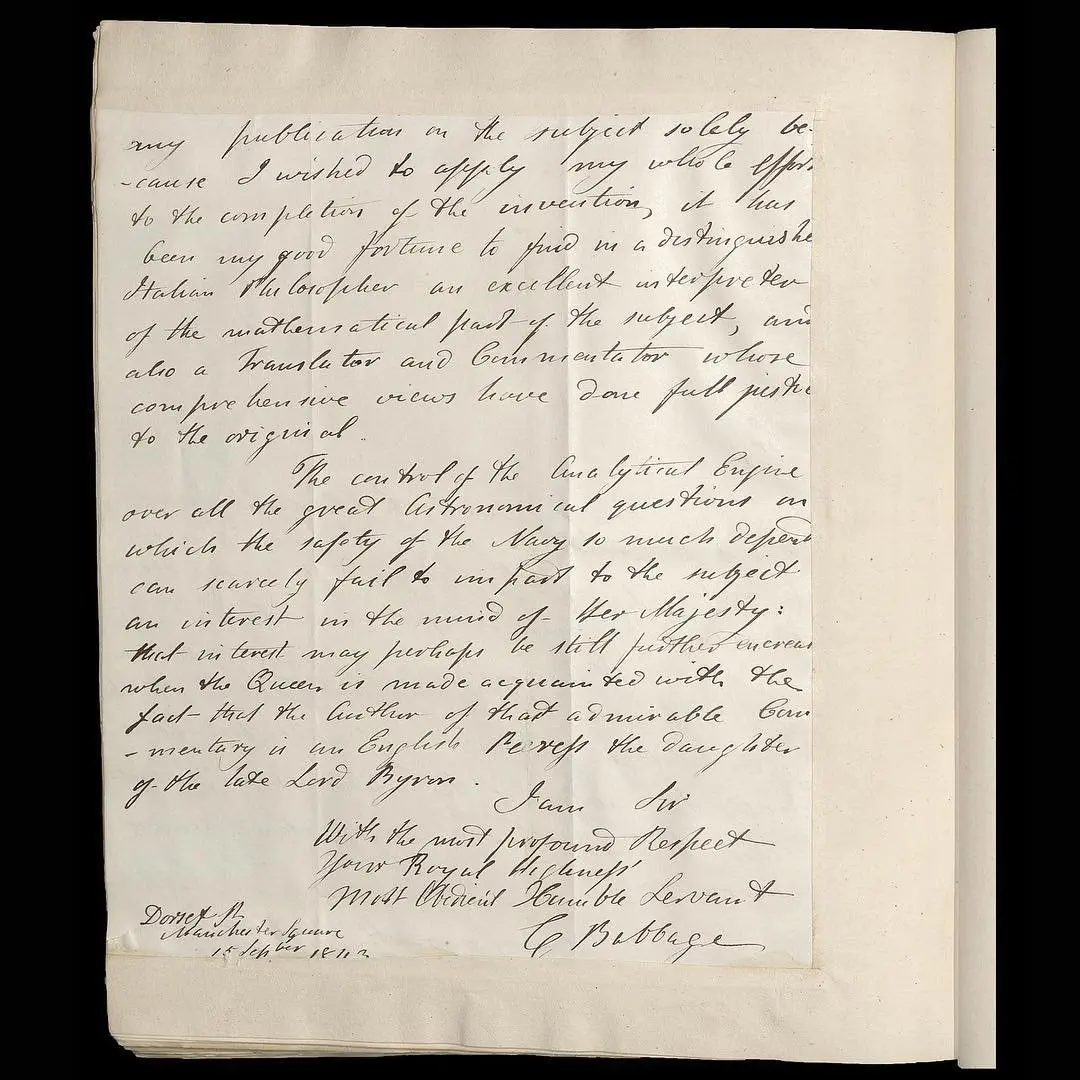 any publication on the subject solely be-
-cause I wished to apply my whole effort
to the completion of the invention, it has
been my good fortune to find in a distinguishe
Italian Philosopher an excellent interpreter
of the mathematical part of the subject, and
also a Translator and Commentator whose
comprehensive views have done full justice
to the original.
The control of the Analytical Engine
over all the great Astronomical questions on
which the safety of the Navy so much depend
can scarcely fail to impart to the subject
an interest in the mind of Her Majesty:
that interest may perhaps be still further encreas
when the Queen is made acquainted with the
fact that the Author of that admirable Com
-mentary is an English Peeress the daughter
of the late Lord Byron.
I am Sir
With the most profound Respect
Your Royal Highness'
Most Obedient Humble Servant
C Babbage
Dorset St
Manchester Square
15 Sepber 1843